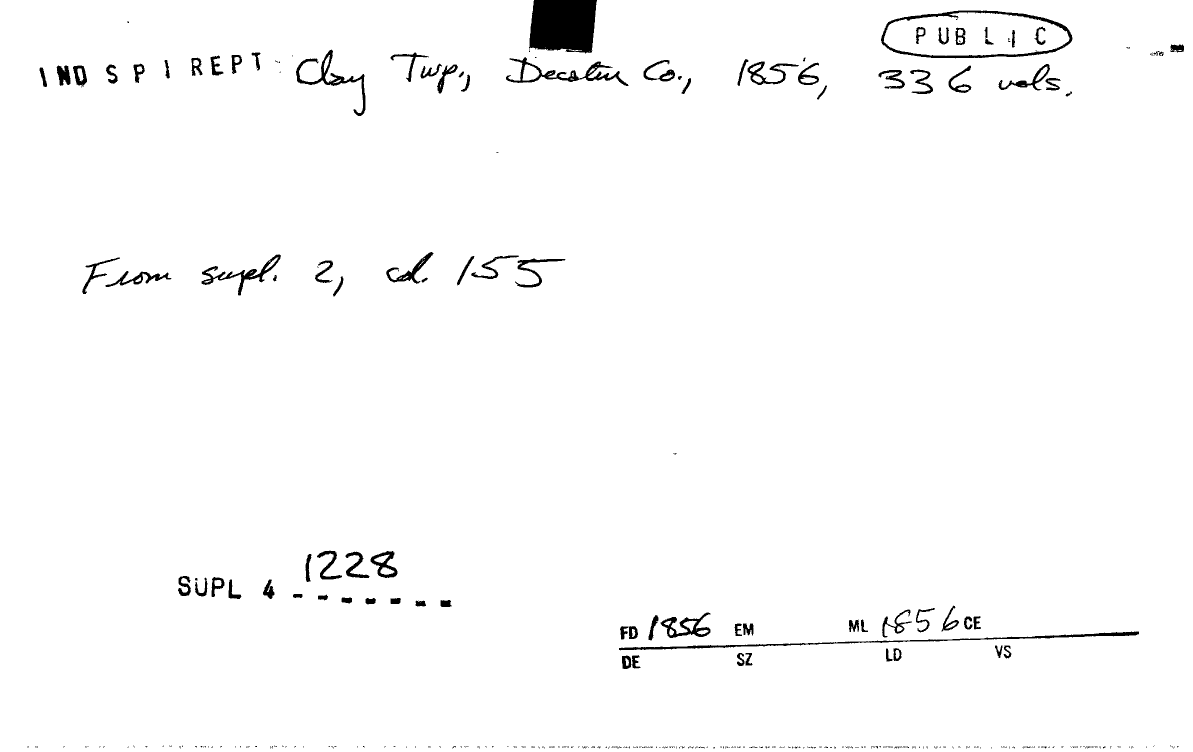 PUBLIC
IND SPI REPT: Clay Twp., Decatur Co., 1856, 336 vols.
From supl. 2, cd. 155
1228
SUPL 4 -------
FD 1856 EM ML 1856 CE
DE SZ LD VS